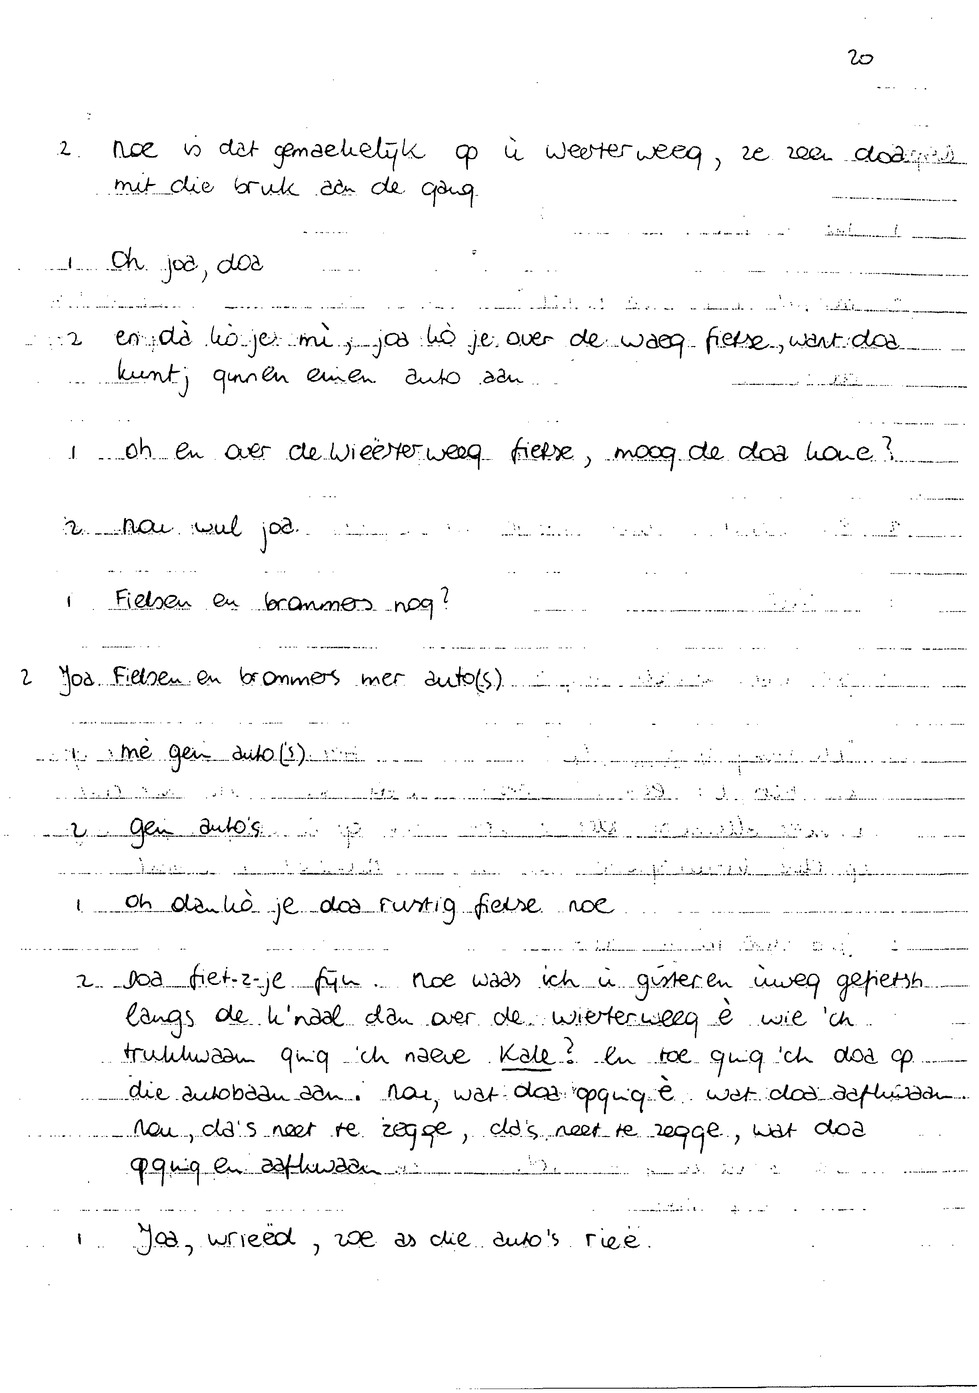 20
2. noe is dat gemaekelijk op ù weerterweeg, ze zeen doa
mit die bruk aan de gang
1 Oh joa, doa
2 en dà kò je mè, joa kò je over de waeg fietse, want doa
kumtj ginnen einen auto aan
1 oh en over de wieërterweeg fietse, moog de doa kone?
2 nou wul joa.
1 Fietsen en brommers nog?
2 Joa Fietsen en brommers mer auto(s)
1 mè gein auto(s)
2 gein auto's
1 oh dan kò je doa rustig fietse noe
2 Doa fiet-z-je fijn. noe waas ich ù gisteren ùweg gefietsh
langs de k'naal dan over de wierterweeg è wie 'ch
trukkwaam ging 'ch naeve Kale? En toe ging 'ch doa op
die autobaan aan. Nou, wat doa opging è wat doa aafkwaam.
Nou, da's neet te zegge, da's neet te zegge, wat doa
opging en aafkwaam
1 Joa, wrieëd, zoe as die auto's rieë.